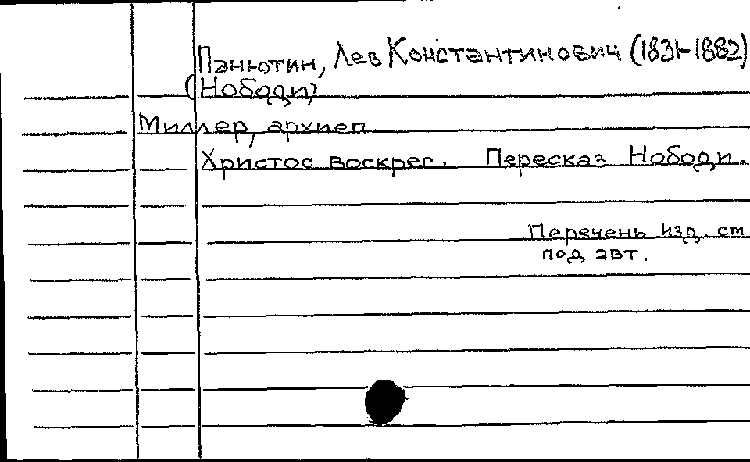 Панютин, Лев Константинович (1831-1882)
(Нободи)
Миллер, архиеп
Христос воскрес. Пересказ Нободи.
Перечень изд. см
под авт.